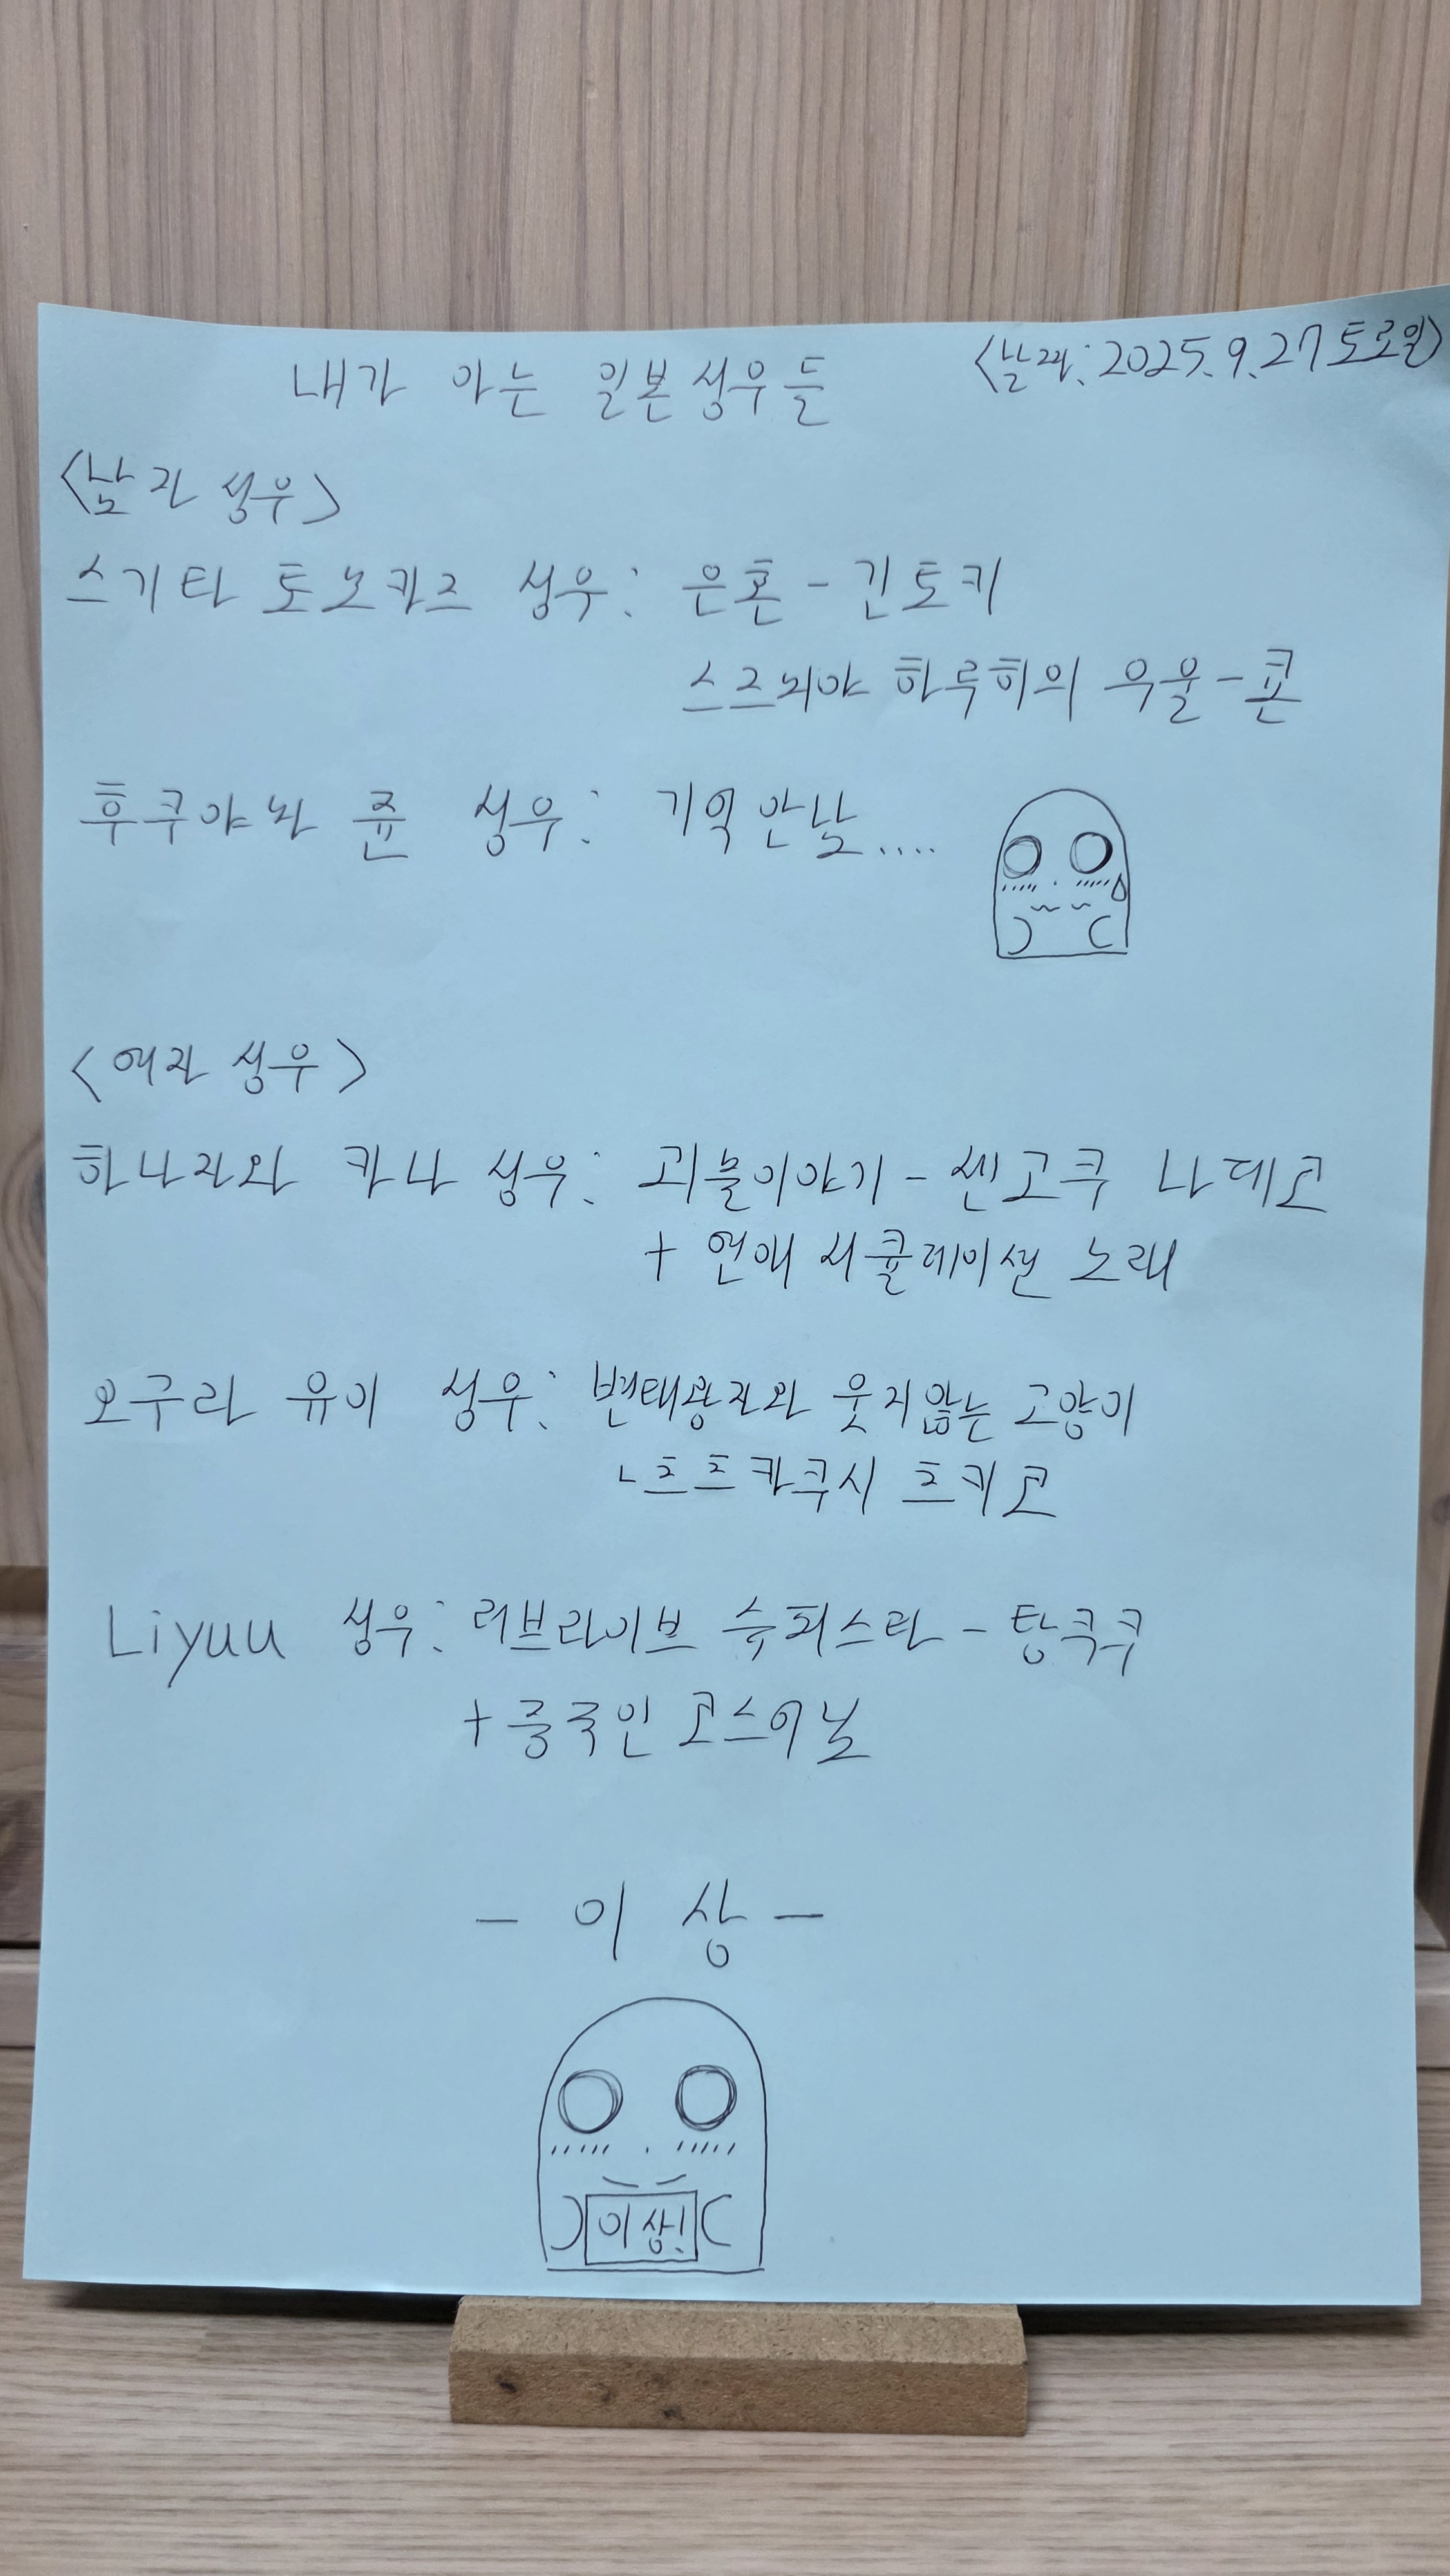 내가 아는 일본성우들
<날짜: 2025.9.27토요일>
<남자 성우>
스기타 토모카즈 성우: 은혼 - 긴토키
스즈미야 하루히의 우울 - 쿈
후쿠야마 쥰 성우: 기억안남....
<여자 성우>
하나자와 카나 성우: 괴물이야기 - 센고쿠 나데코
+ 연애 서큘레이션 노래
오구라 유이 성우: 변태왕자와 웃지않는 고양이
- 츠츠카쿠시 츠키코
Liyuu 성우: 러브라이브 슈퍼스타 - 탕쿠쿠
+ 중국인 코스어님
- 이 상 -
이상!